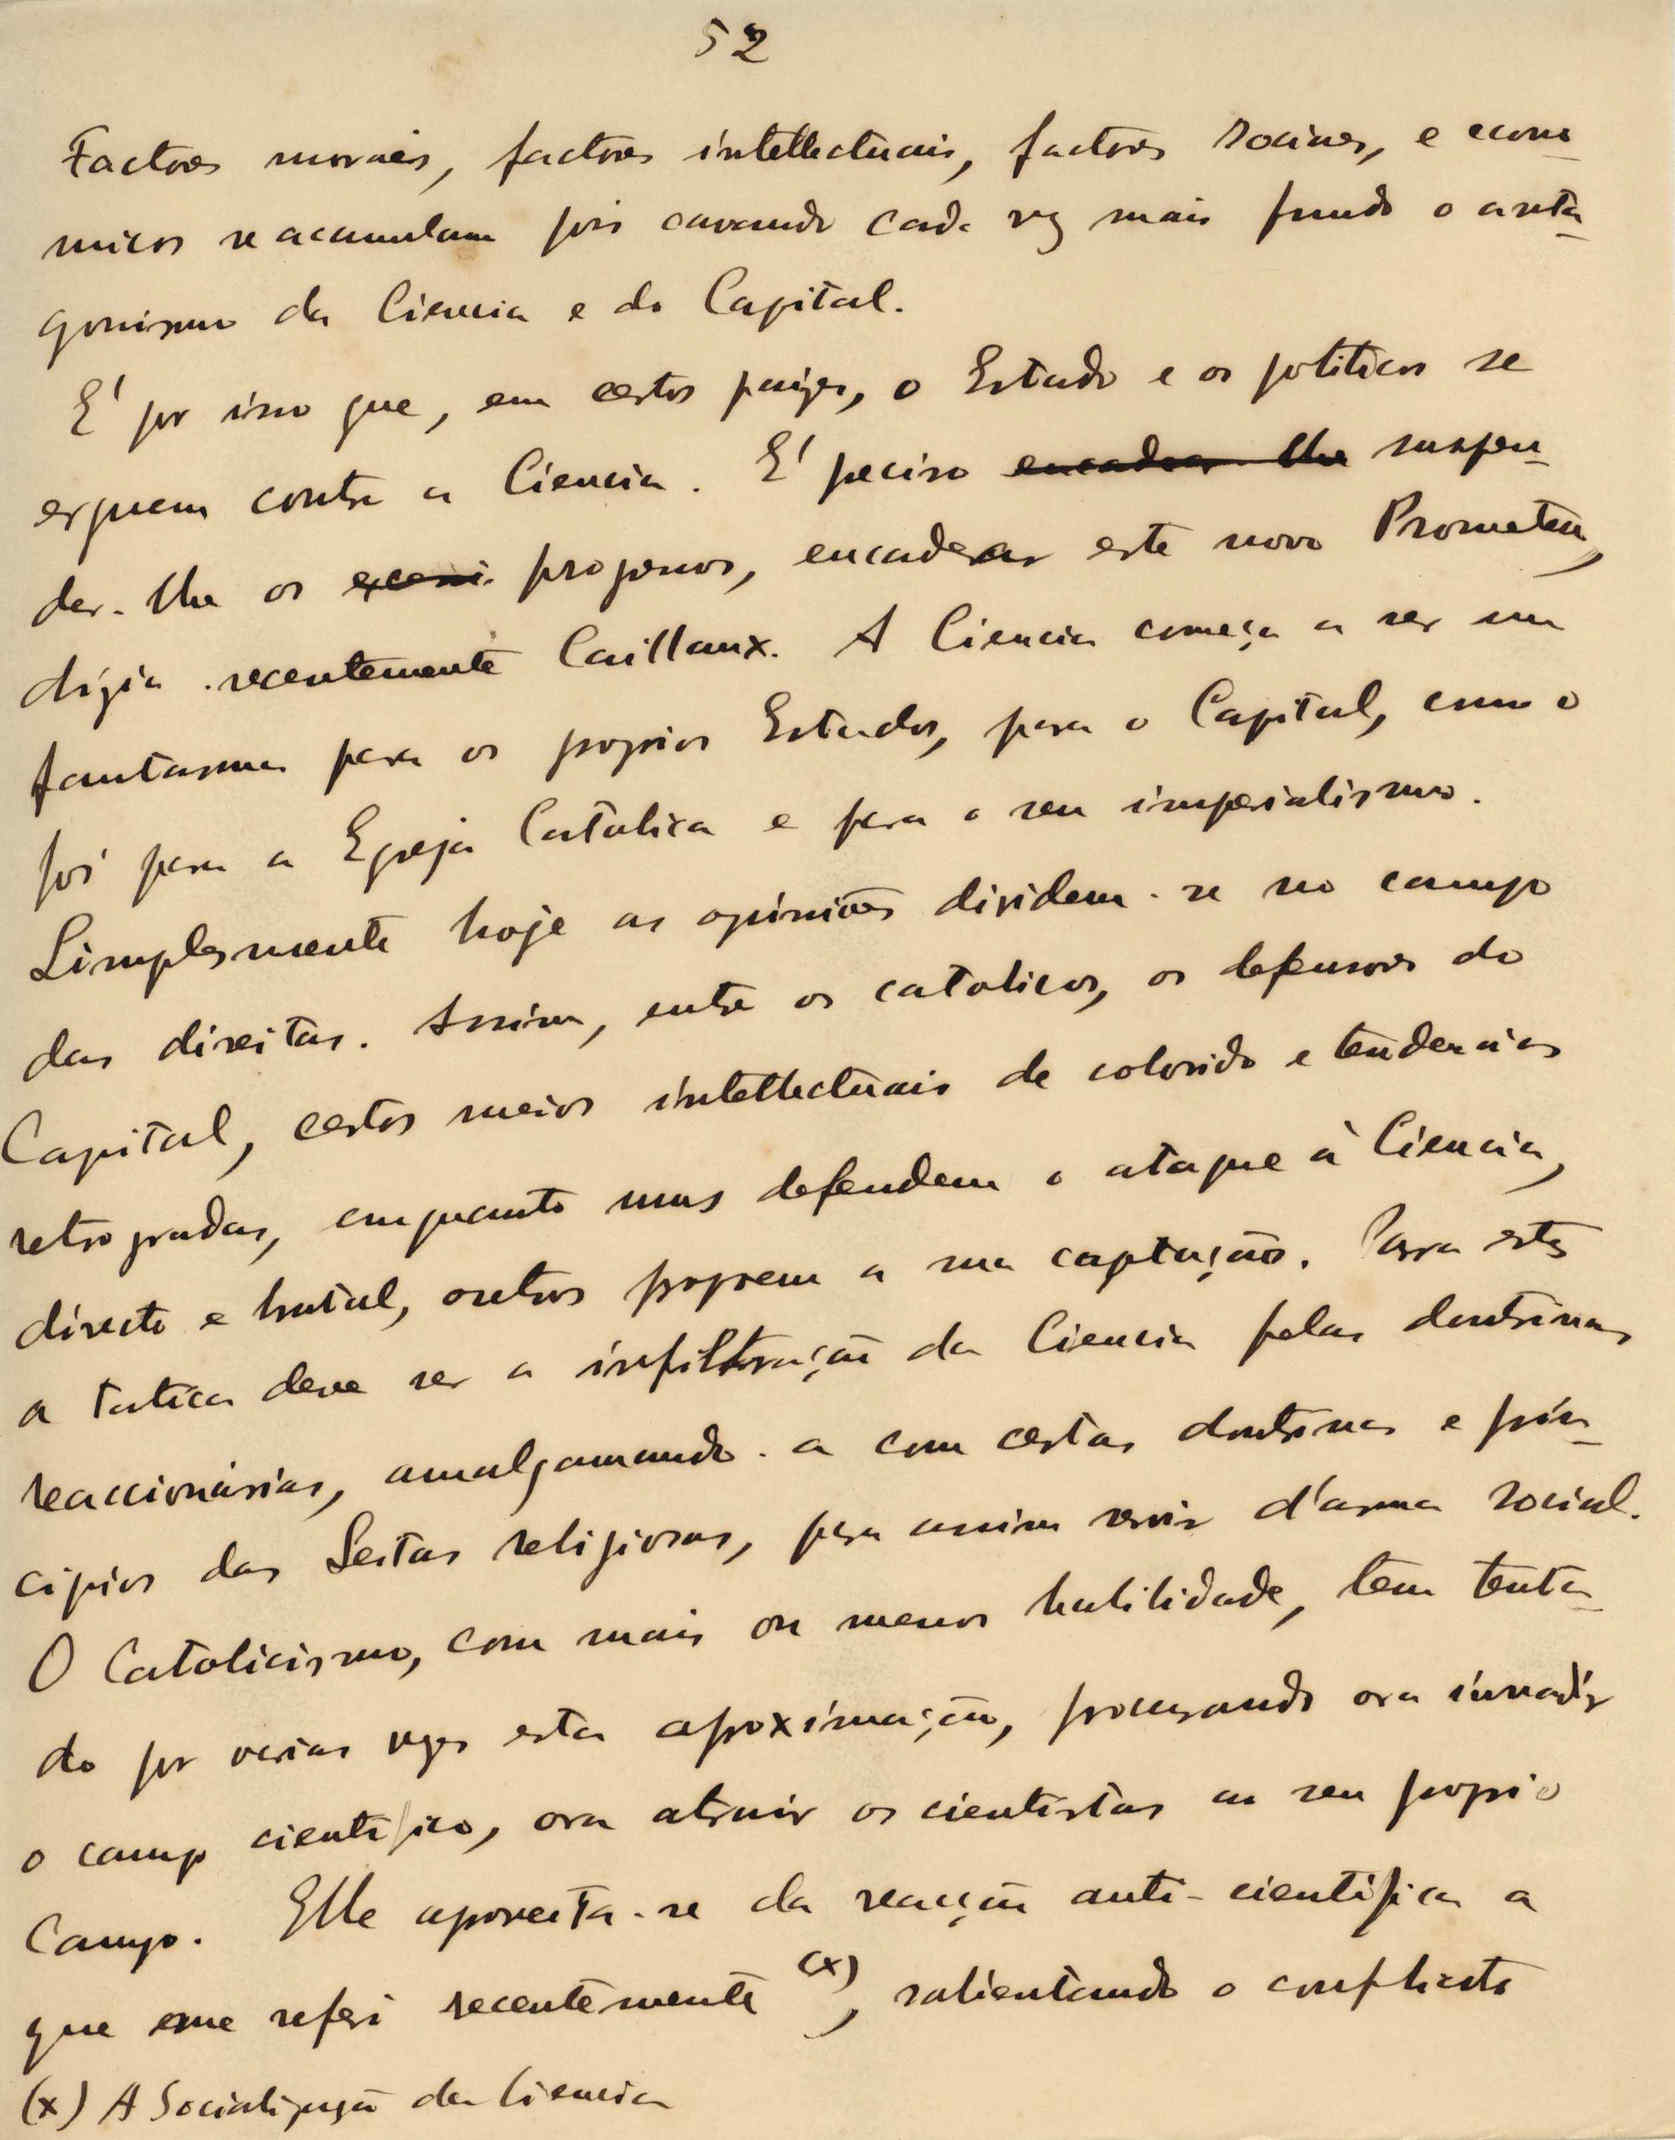 52
Factores moraes, factores intellectuais, factores sociaes, e econo-
micos se acumulam pois cavando cada vez mais fundo o anta-
gonismo da Ciencia e do Capital.
E' por isso que, em certos paizes, o Estado e os politicos se
erguem contra a Ciencia. E' preciso encadear-lhe suspen-
der-lhe os progressos, encadear este novo Prometeu,
dizia recentemente Caillaux. A Ciencia começa a ser um
fantasma para os proprios Estados, para o Capital, como o
foi para a Egreja Catolica e para o seu imperialismo.
Simplesmente hoje as opiniões dividem-se no campo
das direitas. Assim, entre os catolicos, os defensores do
Capital, certos meios intellectuais de colorido e tendencias
retrogradas, emquanto uns defendem o ataque à Ciencia,
directo e brutal, outros propoem a sua captação. Para estes
a tatica deve ser a infiltração da Ciencia pelas doutrinas
reaccionárias, amalgamando-a com certas doutrinas e prin-
cipios das Seitas religiosas, para assim servir d'arma social.
O Catolicismo, com mais ou menos habilidade, tem tenta-
do por varias vezes esta aproximação, procurando ora invadir
o campo cientifico, ora atrair os cientistas ao seu proprio
Campo. Elle aproveita-se da reacção anti-cientifica a
que me referi recentemente (x), salientando o conflicto
(x) A Socialização da Ciencia